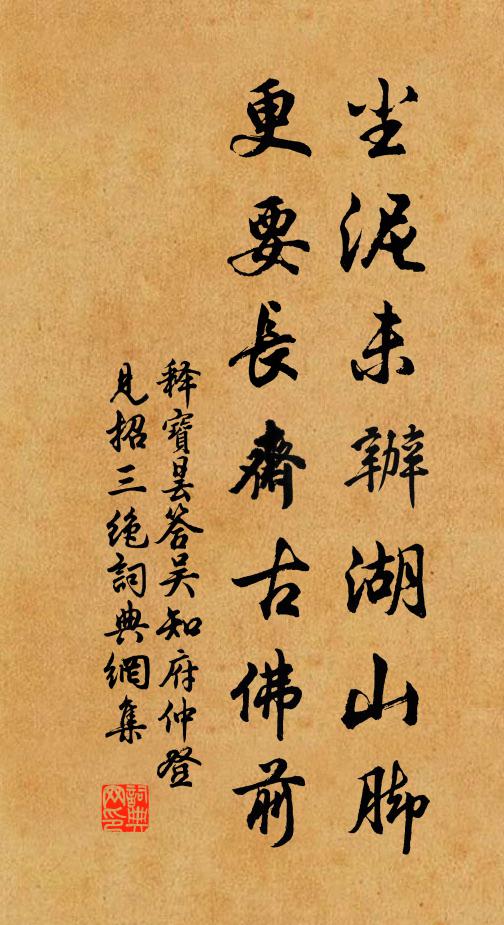 尘泥未辦湖山脚
更要長齋古佛前
释寶曇答吴知府仲登
見招三绝詞典網集
詞典网印